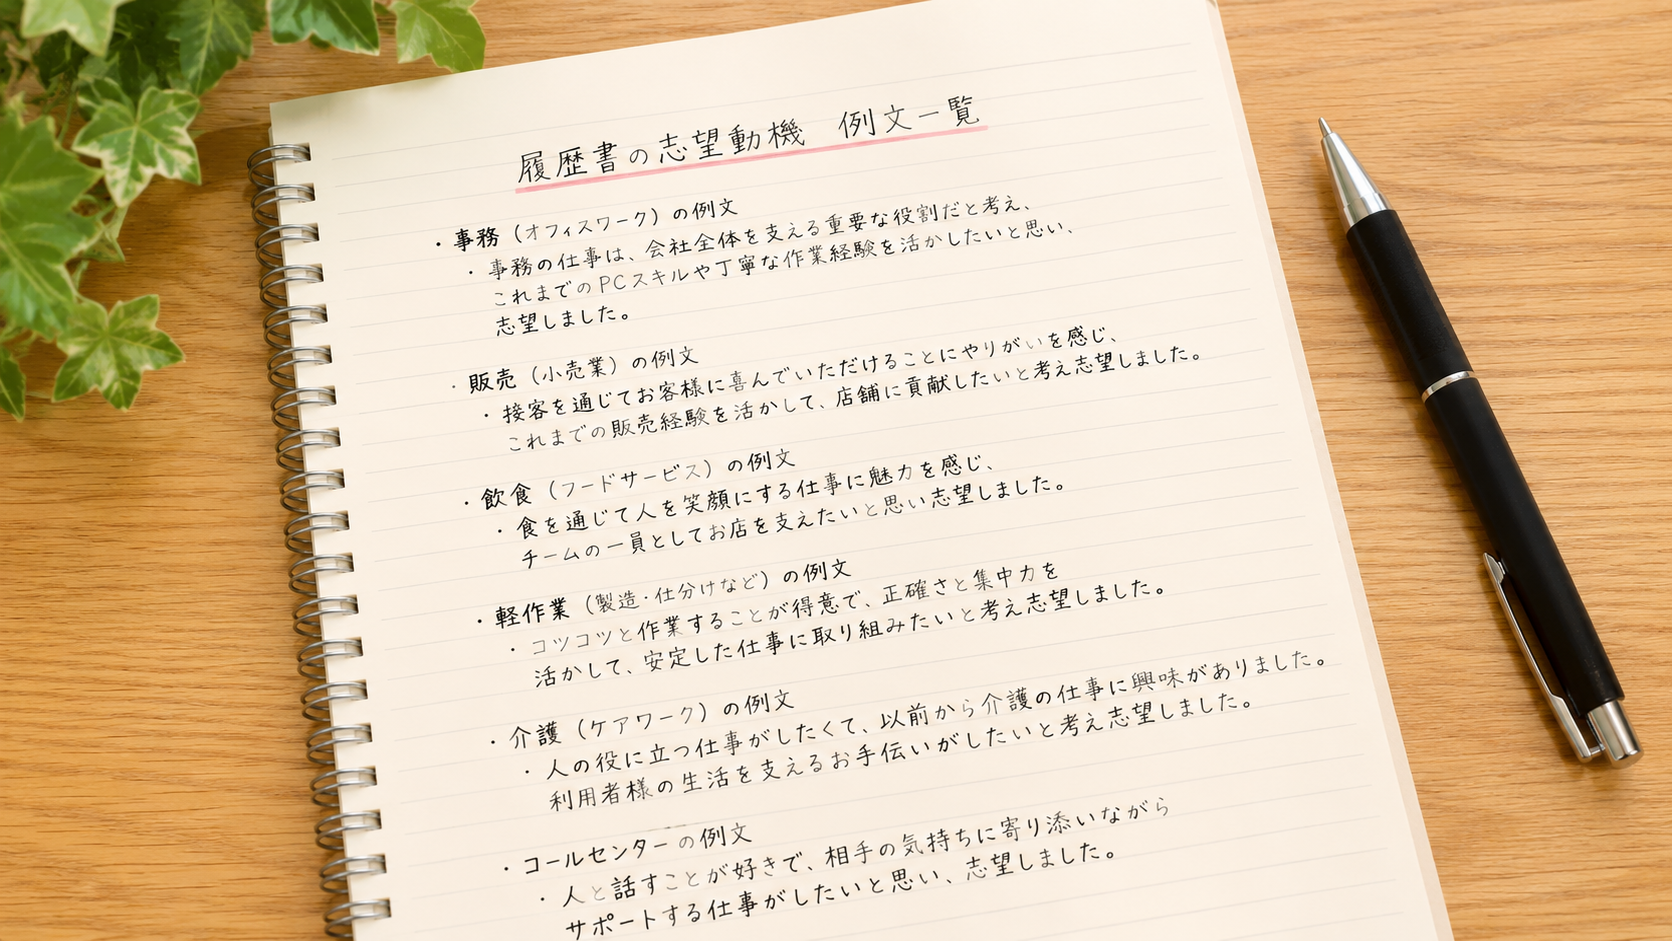 履歴書の志望動機 例文一覧
・事務（オフィスワーク）の例文
・事務の仕事は、会社全体を支える重要な役割だと考え、
これまでのPCスキルや丁寧な作業経験を活かしたいと思い、
志望しました。
・販売（小売業）の例文
・接客を通じてお客様に喜んでいただけることにやりがいを感じ、
これまでの販売経験を活かして、店舗に貢献したいと考え志望しました。
・飲食（フードサービス）の例文
・食を通じて人を笑顔にする仕事に魅力を感じ、
チームの一員としてお店を支えたいと思い志望しました。
・軽作業（製造・仕分けなど）の例文
・コツコツと作業することが得意で、正確さと集中力を
活かして、安定した仕事に取り組みたいと考え志望しました。
・介護（ケアワーク）の例文
・人の役に立つ仕事がしたくて、以前から介護の仕事に興味がありました。
利用者様の生活を支えるお手伝いがしたいと考え志望しました。
・コールセンターの例文
・人と話すことが好きで、相手の気持ちに寄り添いながら
サポートする仕事がしたいと思い、志望しました。